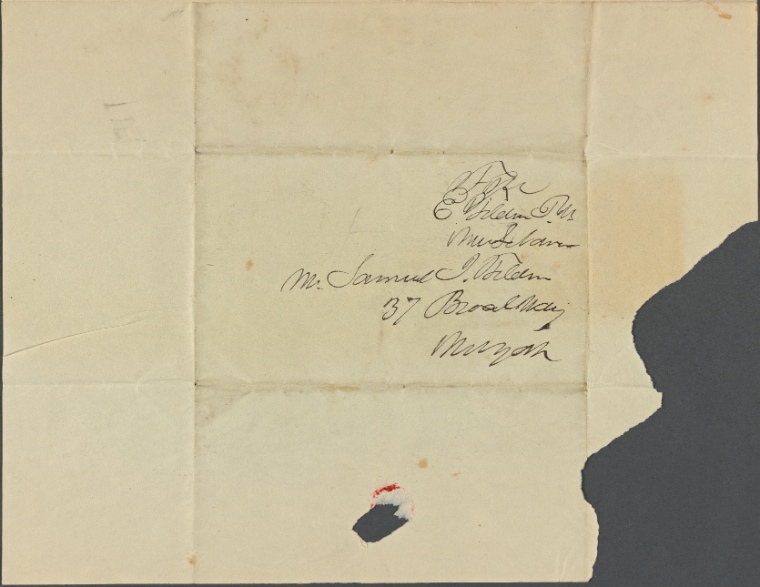 Free
E Tilden P.M.
New Lebanon
Mr. Samuel J. Tilden
37 Broadway
New York